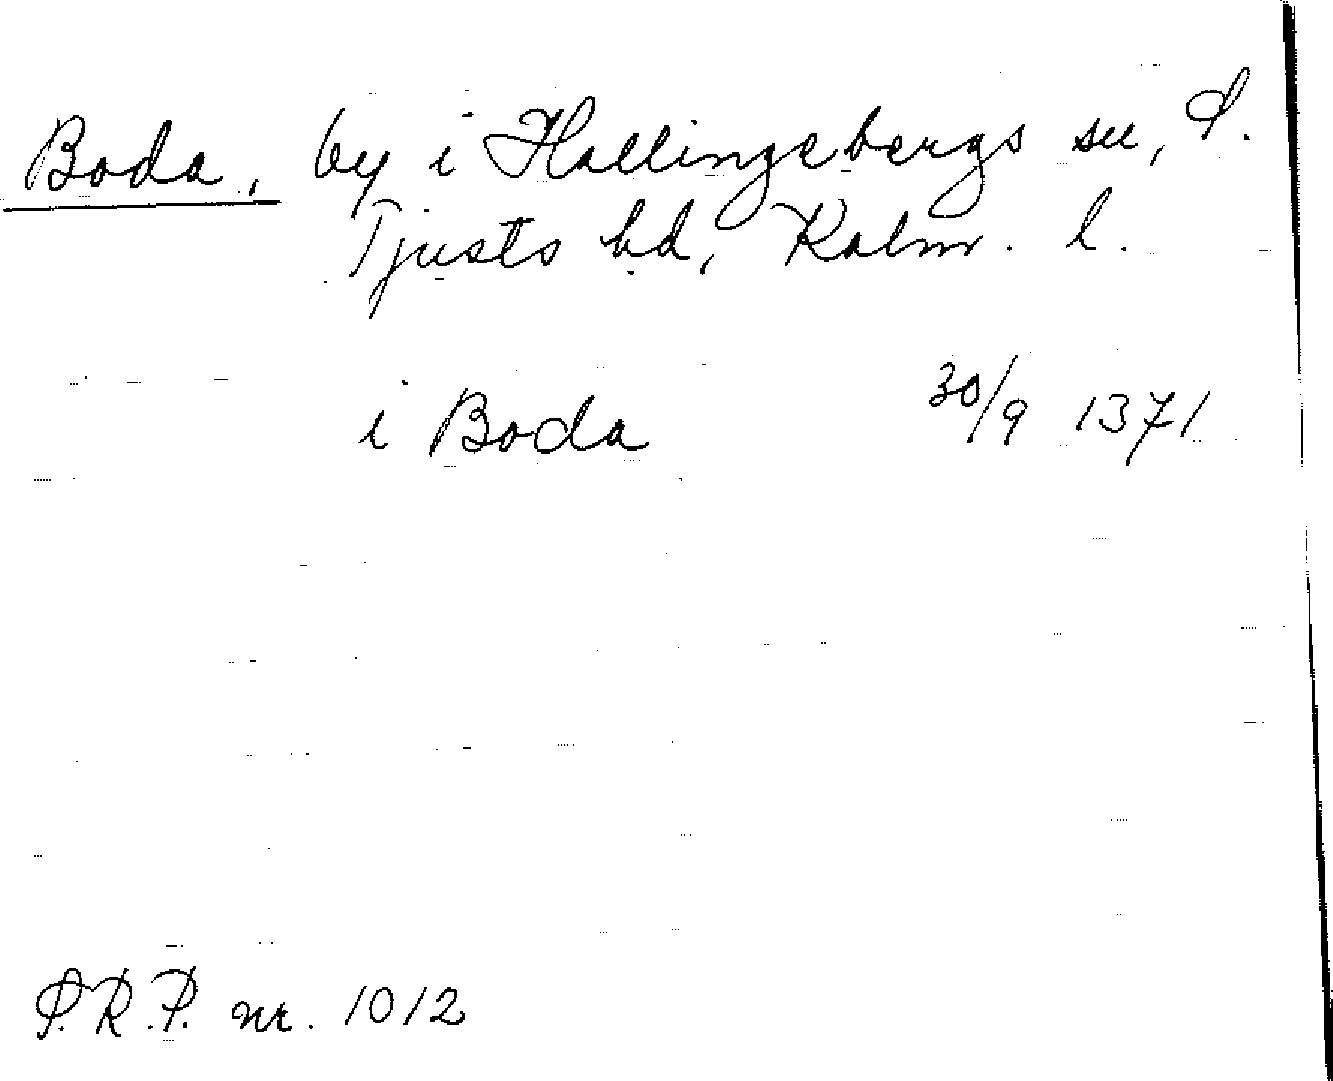 Boda, by i Hallingebergs sn, S.
Tjusts hd, Kalm. l.
i Boda 30/9 1371
P.R.P. nr. 1012